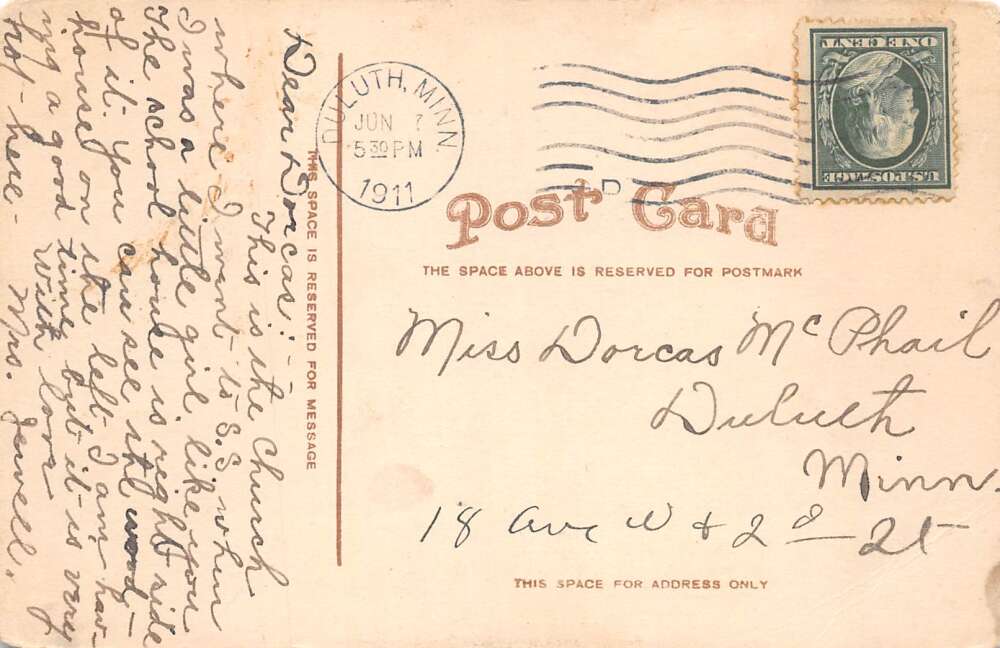 Dear Dorcas: -
This is the Church
where I went to S.S. when
I was a little girl like you
The school house is right side
of it. You can see the wood-
house on the left. I am hav-
ing a good time, but it is very
hot here - With love
Mrs. Jewell.
THIS SPACE IS RESERVED FOR MESSAGE
DULUTH, MINN.
JUN 7
5 30 PM
1911
ONE CENT
U.S. POSTAGE
Post Card
THE SPACE ABOVE IS RESERVED FOR POSTMARK
Miss Dorcas McPhail
Duluth
Minn.
18 Ave W & 2d St
THIS SPACE FOR ADDRESS ONLY